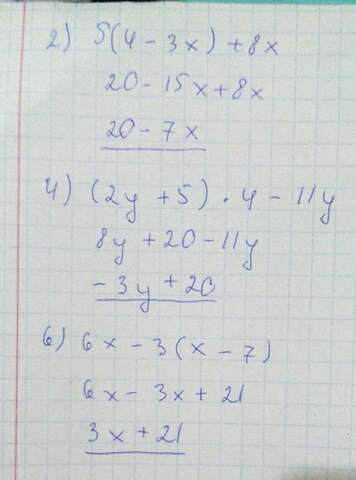 2) 5(4 - 3x) + 8x
20 - 15x + 8x
20 - 7x
4) (2y + 5) · 4 - 11y
8y + 20 - 11y
- 3y + 20
6) 6x - 3(x - 7)
6x - 3x + 21
3x + 21